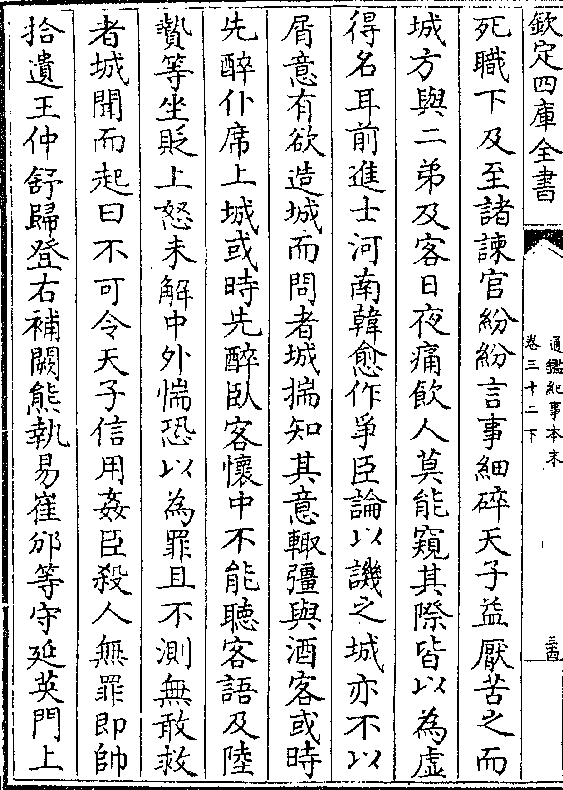 欽定四庫全書
通鑑紀事本末
卷三十二下
死職下及至諸諫官紛紛言事細碎天子益厭苦之而
城方與二弟及客日夜痛飲人莫能窺其際皆以為虛
得名耳前進士河南韓愈作爭臣論以譏之城亦不以
屑意有欲造城而問者城揣知其意輙彊與酒客或時
先醉仆席上城或時先醉臥客懷中不能聽客語及陸
贄等坐貶上怒未解中外惴恐以為罪且不測無敢救
者城聞而起曰不可令天子信用姦臣殺人無罪即帥
拾遺王仲舒歸登右補闕熊執易崔邠等守延英門上